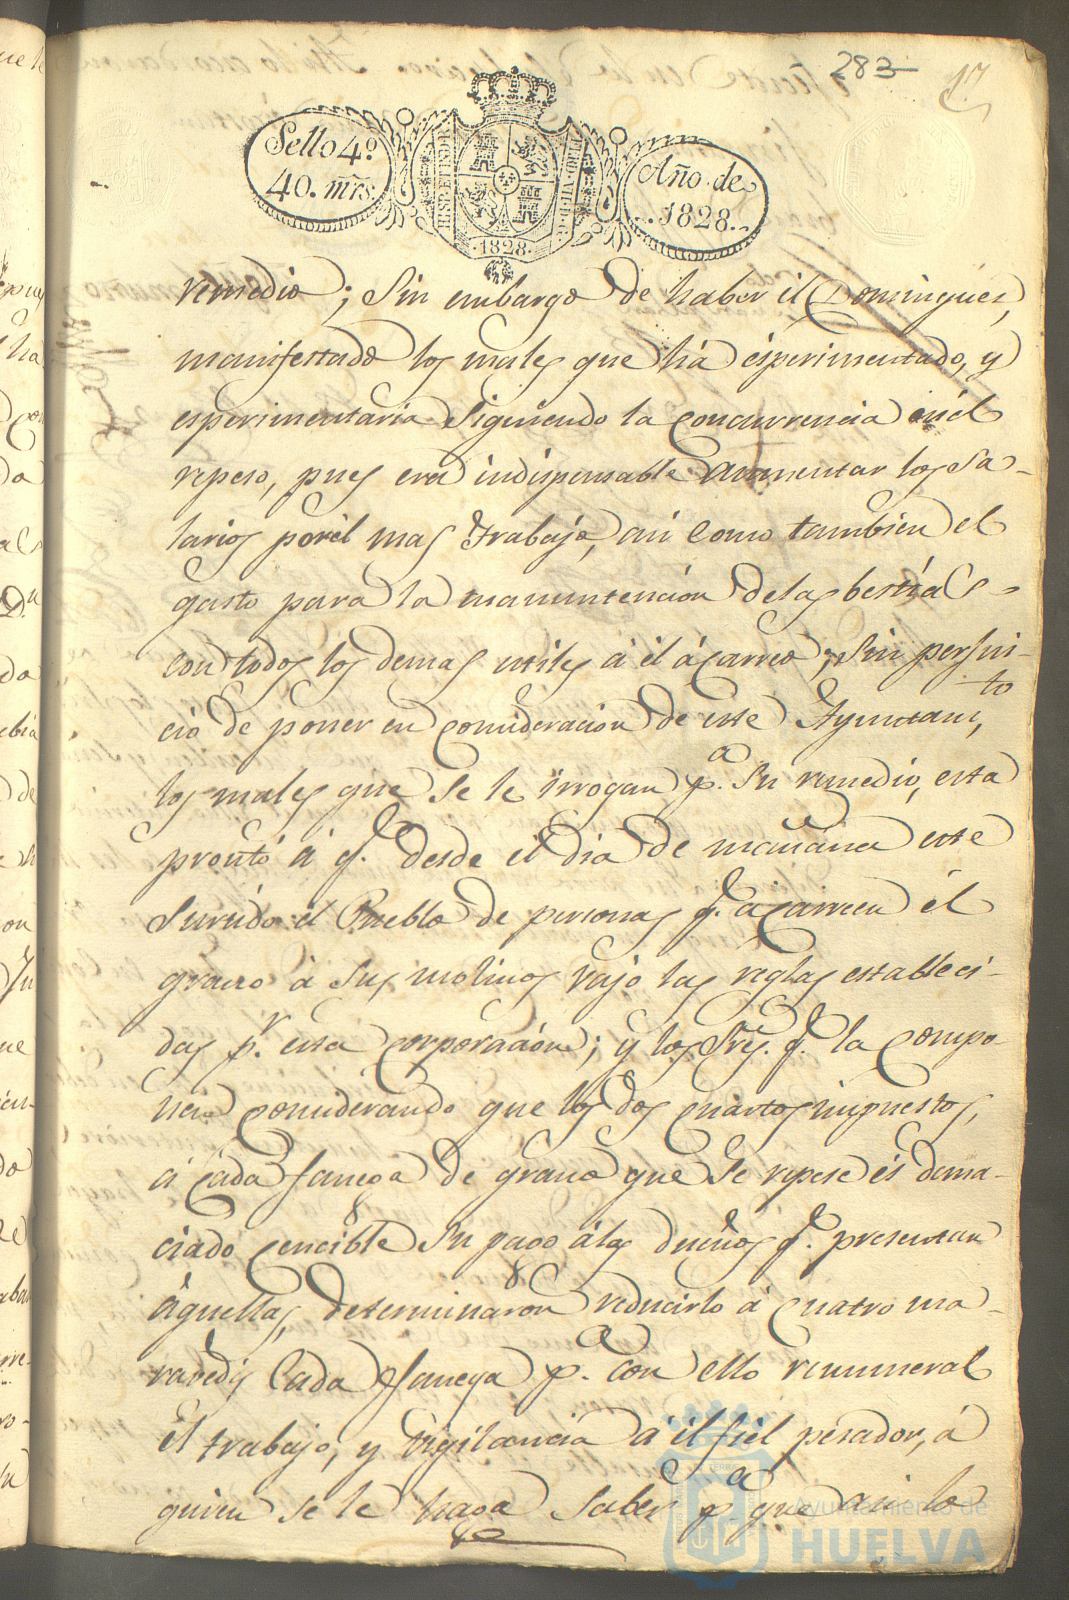 283
17
Sello 4º
40. mrs
HISP. ET IND. R
FERD. VII. D. G.
1828.
Año de
1828.
remedio; Sin embargo de haber il Domingues,
manifestado los males que há ésperimentado, y
esperimentaria Siguiendo la concurrencia en él
repeso, pues era indispensable aumentar los sa-
larios porél mas trabajo, así como tambien el
gasto para la manuntención delas bestias
con todos los demas utiles á él ácarreo; Sin perjui-
cio de poner en consideracion de este Ayuntam,to
los males que se le irrogan p.a Su remedio, esta
pronto á q.e desde el dia de mañana esté
Surtido el Pueblo de personas q.e acarreen él
grano á Sus molinos vajo las reglas estableci-
das p.r esta corporación; y los Sres. q.e la compo-
nen considerando que los dos cuartos impuestos,
á cada fanega de grano que Se repese és dema-
ciado cencible Su pago álos dueños q.e presentan
áquellas, determinaron reducirlo á cuatro ma-
ravedis Cada fanega p.a con ello remunerar
él trabajo, y vigilancia á il fiel pesador, á
quien se le haga saber p.a que asi lo
Ayuntamiento de
HUELVA